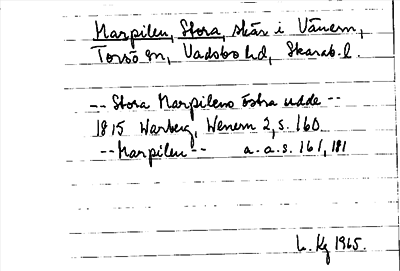 Marpilen, Stora, skär i Vänern,
Torsö sn, Vadsbo hd, Skarab. l.
-- Stora Marpilens östra udde --
1815 Warberg, Wenern 2, s. 160
-- Marpilen -- a.a.s. 161, 181
L. Kg 1965.